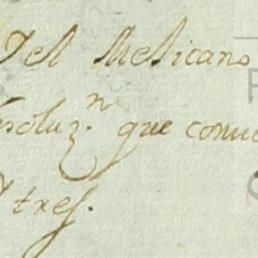 Del Mexicano
resoluz.n que comu
tres.